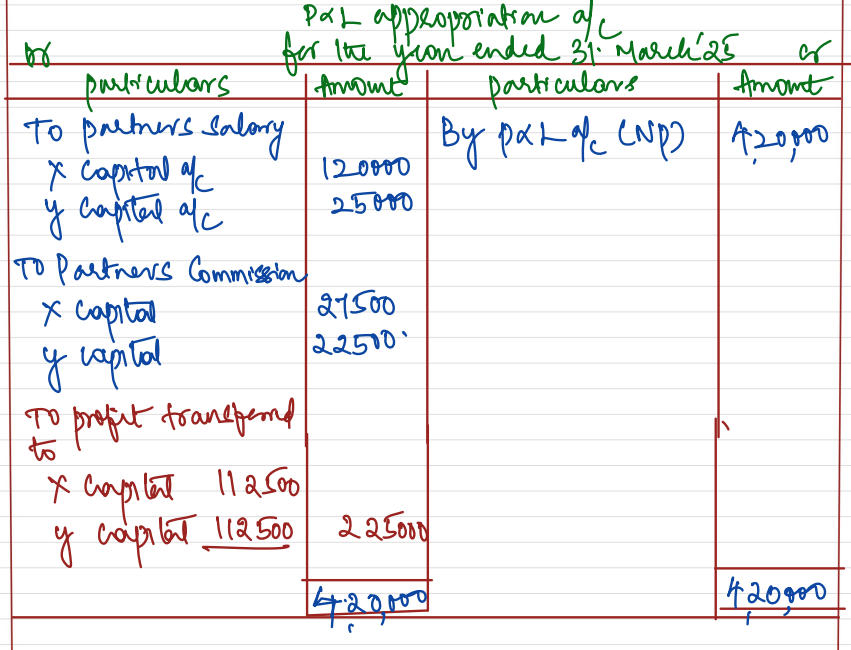 P&L appropriation a/c
Dr for the year ended 31. March'25 Cr
particulars Amount particulars Amount
To partners salary By P&L a/c (NP) 4,20,000
X capital a/c 120000
Y capital a/c 25000
To Partners Commission
X capital 27500
Y capital 22500
To profit transferred
to
X capital 112500
Y capital 112500 225000
4,20,000 4,20,000